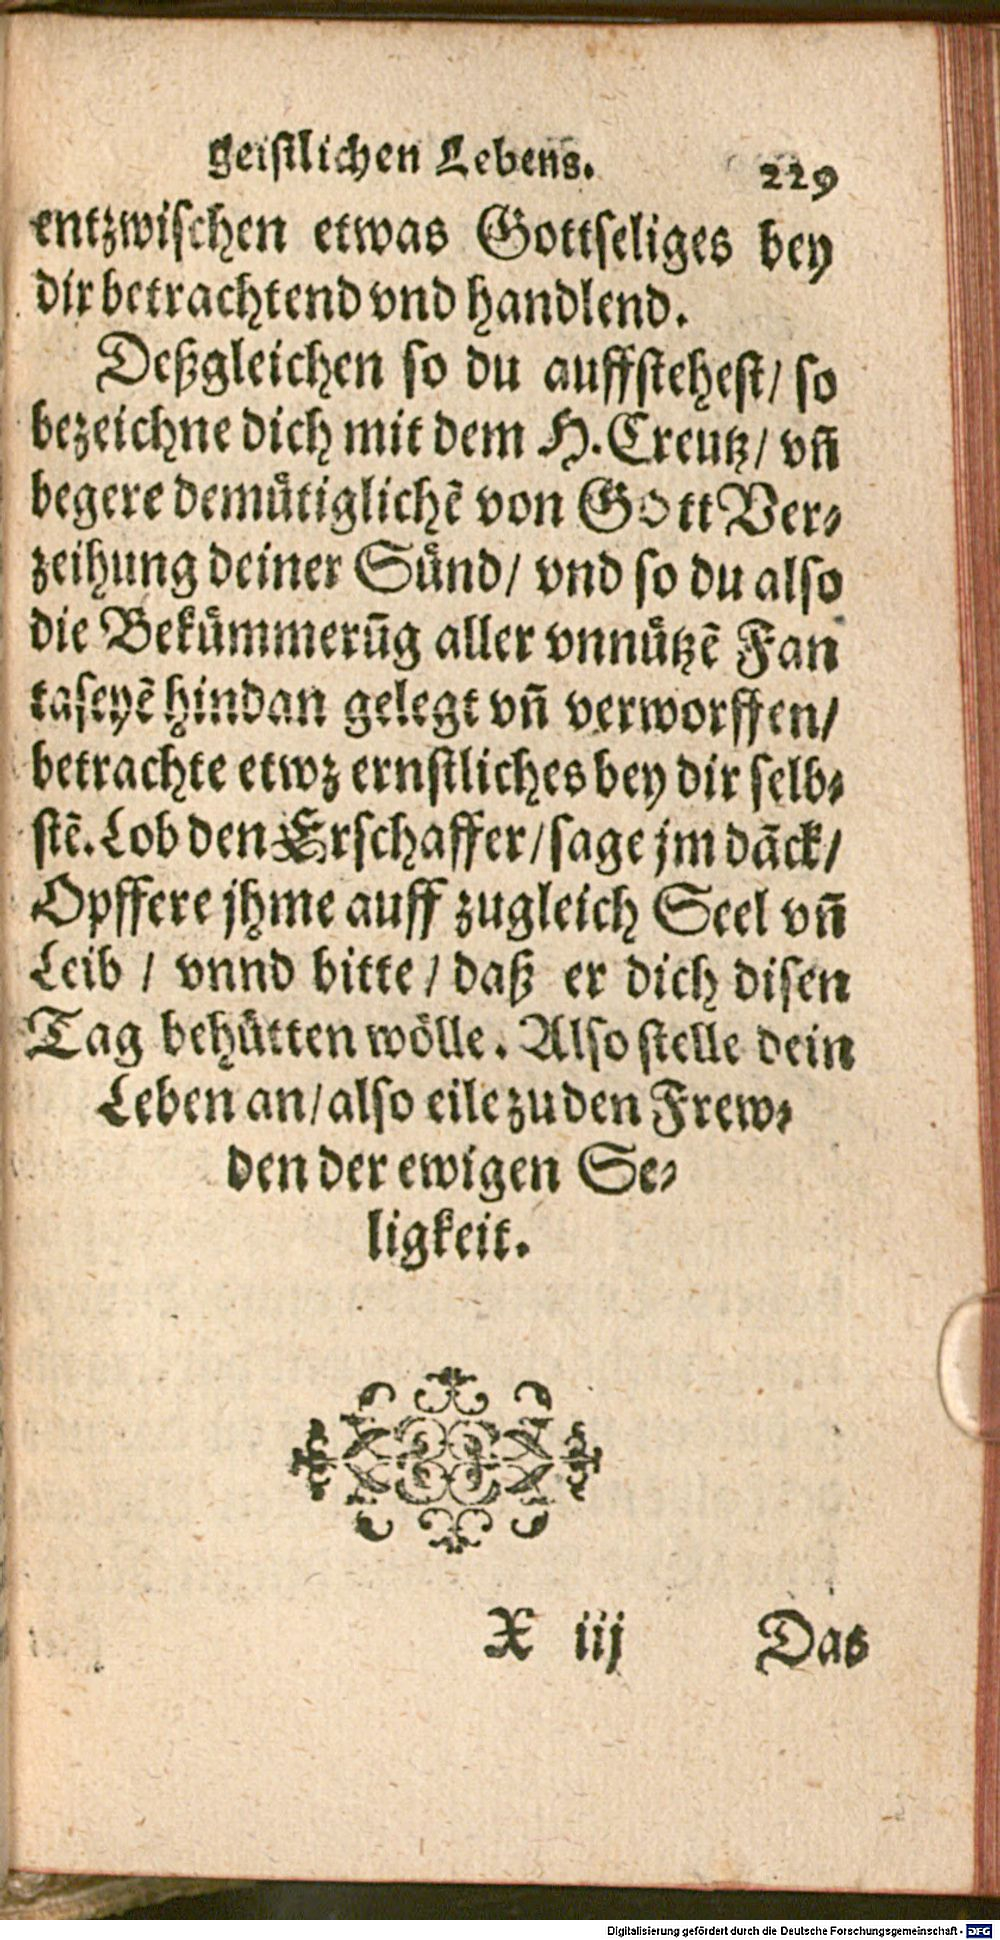 geistlichen Lebens. 229
entzwischen etwas Gottseliges bey
dir betrachtend vnd handlend.
Deßgleichen so du auffstehest/ so
bezeichne dich mit dem H. Creutz/ vñ
begere demütiglichẽ von Gott Ver-
zeihung deiner Sünd/ vnd so du also
die Bekümmerũg aller vnnützẽ Fan
taseyẽ hindan gelegt vñ verworffen/
betrachte etwz ernstliches bey dir selb-
stẽ. Lob den Erschaffer/ sage jm dãck/
Opffere jhme auff zugleich Seel vñ
Leib / vnnd bitte / daß er dich disen
Tag behütten wölle. Also stelle dein
Leben an/ also eile zu den Frew-
den der ewigen Se-
ligkeit.
X iij Das
Digitalisierung gefördert durch die Deutsche Forschungsgemeinschaft - DFG